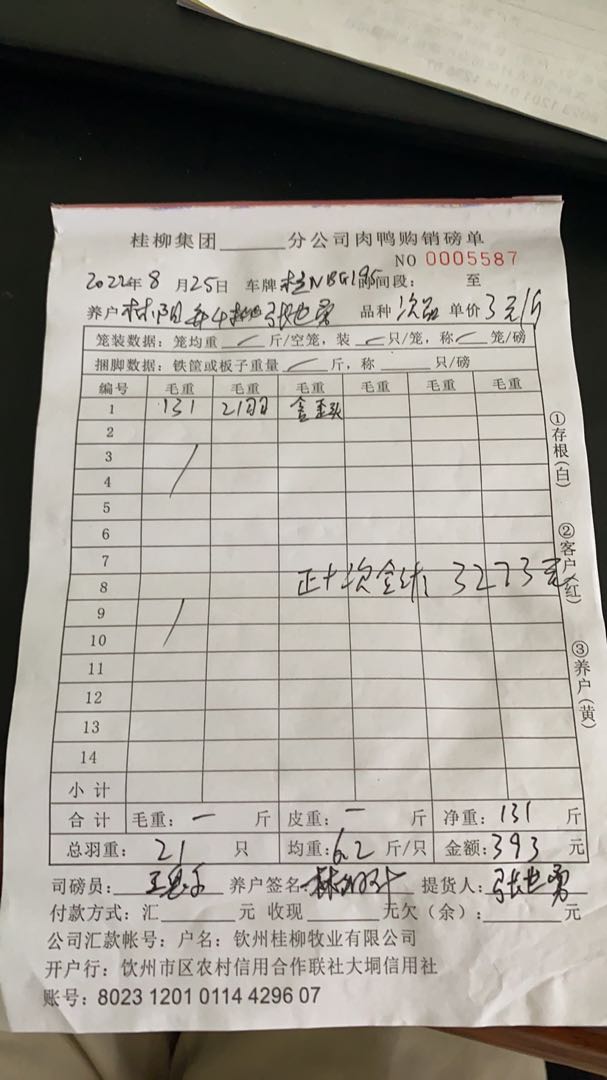 桂柳集团______分公司肉鸭购销磅单
NO 0005587
2022年8月25日 车牌 桂N 时间段: 至
养户 品种 次品 单价 3元/斤
笼装数据: 笼均重 斤/空笼, 装 只/笼, 称 笼/磅
捆脚数据: 铁筐或板子重量 斤, 称______只/磅
编号 毛重 毛重 毛重 毛重 毛重 毛重
1 131 21只
2
3
4
5
6
7
8 正十次合计: 3273元
9
10
11
12
13
14
小计
合计 毛重: 一 斤 皮重: 一 斤 净重: 131 斤
总羽重: 21 只 均重: 6.2 斤/只 金额: 393 元
司磅员: 养户签名 提货人: 张世勇
付款方式: 汇______元 收现______元欠(余):______元
公司汇款帐号: 户名: 钦州桂柳牧业有限公司
开户行: 钦州市区农村信用合作联社大垌信用社
账号: 8023 1201 0114 4296 07
①存根(白)
②客户(红)
③养户(黄)